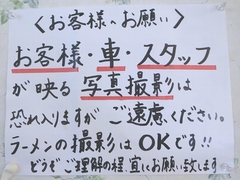 〈お客様へお願い〉
お客様・車・スタッフ
が映る写真撮影は
恐れ入りますがご遠慮ください。
ラーメンの撮影はOKです!!
どうぞご理解の程、宜しくお願い致します